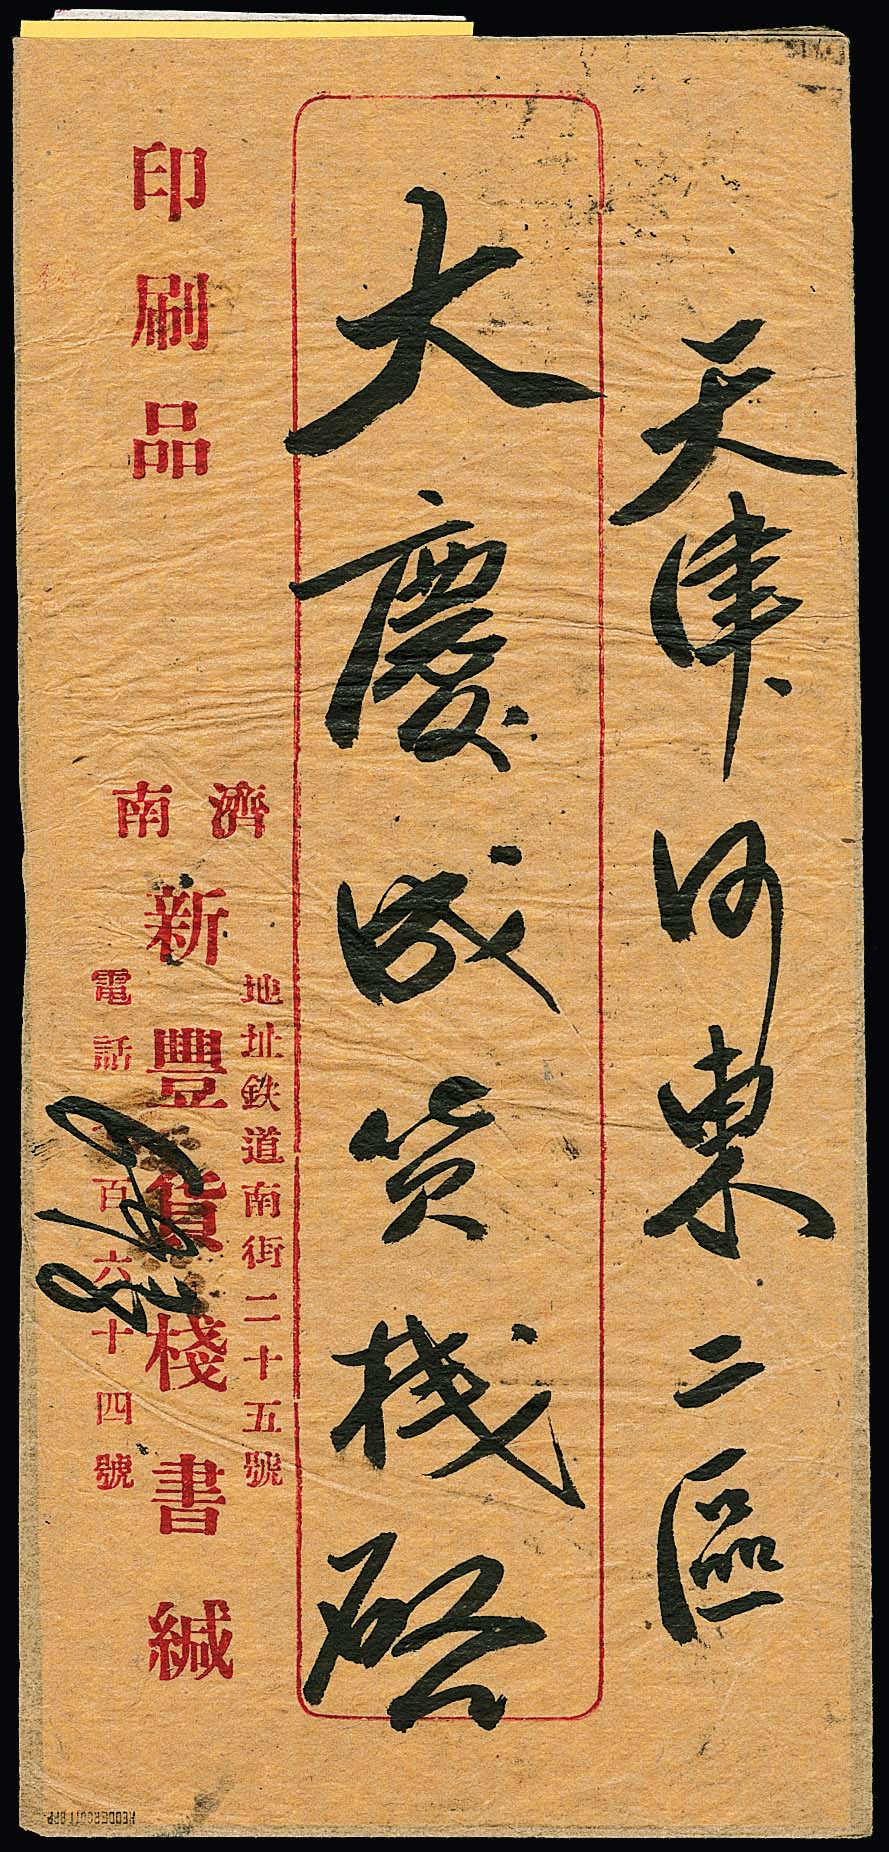 天津河東二區
大慶成货栈啓
印刷品
濟南
地址鉄道南街二十五號
新豐貨棧書緘
電話 百六十四號